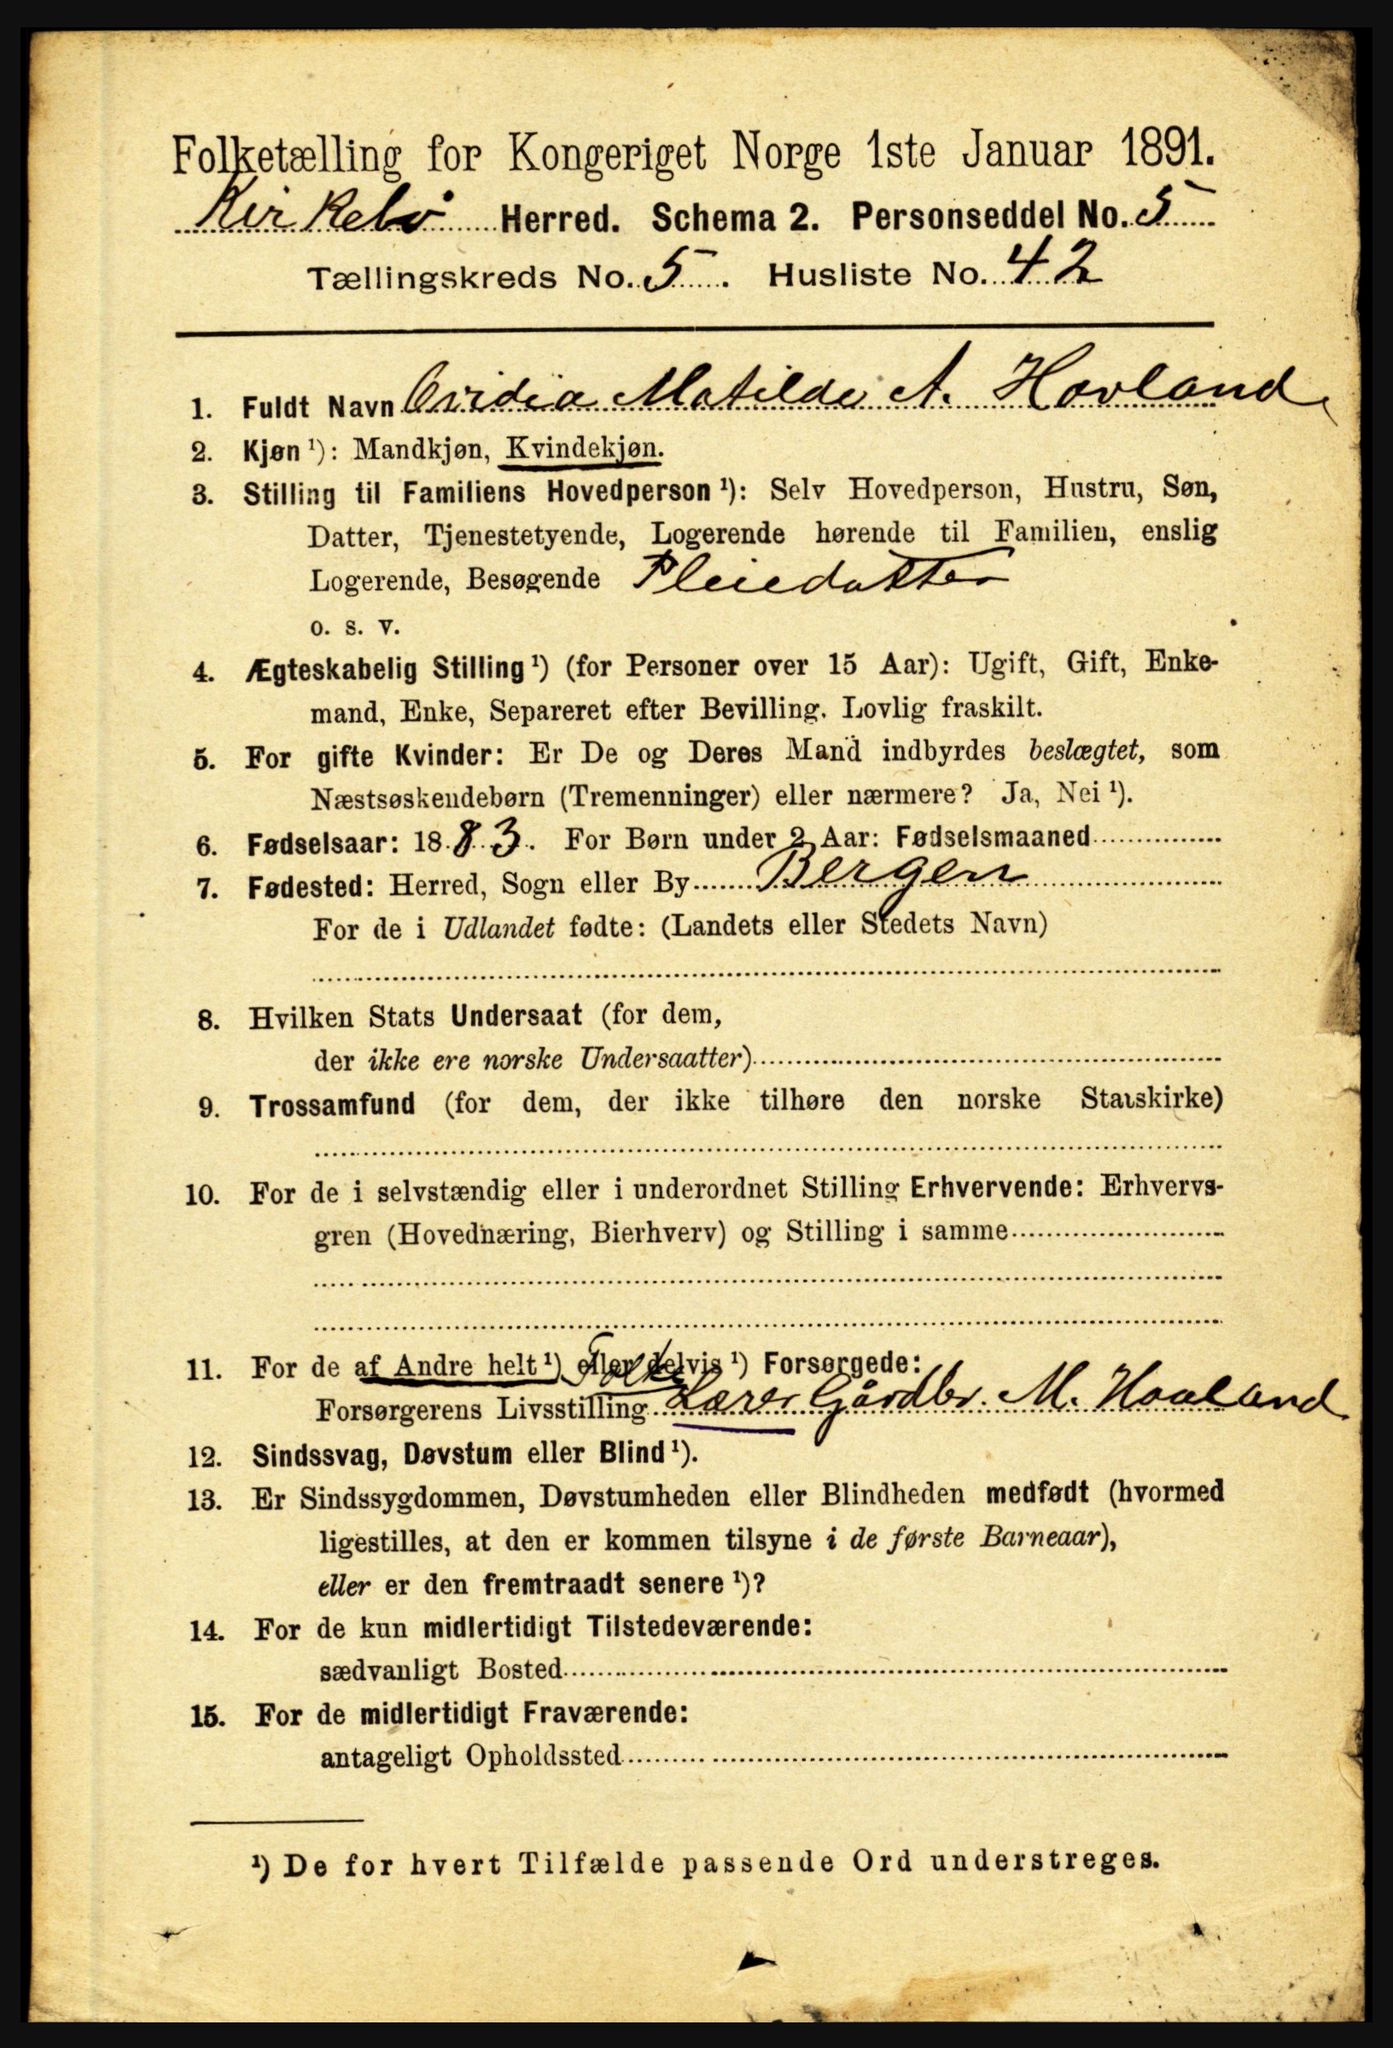 Folketælling for Kongeriget Norge 1ste Januar 1891.
Kirkebø Herred. Schema 2. Personseddel No. 5
Tællingskreds No. 5. Husliste No. 42
1. Fuldt Navn Ovidia Matilde A. Hovland
2. Kjøn ¹): Mandkjøn, Kvindekjøn.
3. Stilling til Familiens Hovedperson ¹): Selv Hovedperson, Hustru, Søn,
Datter, Tjenestetyende, Logerende hørende til Familien, enslig
Logerende, Besøgende Pleiedatter
o. s. v.
4. Ægteskabelig Stilling ¹) (for Personer over 15 Aar): Ugift, Gift, Enke-
mand, Enke, Separeret efter Bevilling. Lovlig fraskilt.
5. For gifte Kvinder: Er De og Deres Mand indbyrdes beslægtet, som
Næstsøskendebørn (Tremenninger) eller nærmere? Ja, Nei ¹).
6. Fødselsaar: 1883. For Børn under 2 Aar: Fødselsmaaned
7. Fødested: Herred, Sogn eller By Bergen
For de i Udlandet fødte: (Landets eller Stedets Navn)
8. Hvilken Stats Undersaat (for dem,
der ikke ere norske Undersaatter)
9. Trossamfund (for dem, der ikke tilhøre den norske Statskirke)
10. For de i selvstændig eller i underordnet Stilling Erhvervende: Erhvervs-
gren (Hovednæring, Bierhverv) og Stilling i samme
11. For de af Andre helt ¹) eller delvis ¹) Forsørgede:
Forsørgerens Livsstilling Lærer Gårdbr. M. Hovland
12. Sindssvag, Døvstum eller Blind ¹).
13. Er Sindssygdommen, Døvstumheden eller Blindheden medfødt (hvormed
ligestilles, at den er kommen tilsyne i de første Barneaar),
eller er den fremtraadt senere ¹)?
14. For de kun midlertidigt Tilstedeværende:
sædvanligt Bosted
15. For de midlertidigt Fraværende:
antageligt Opholdssted
¹) De for hvert Tilfælde passende Ord understreges.